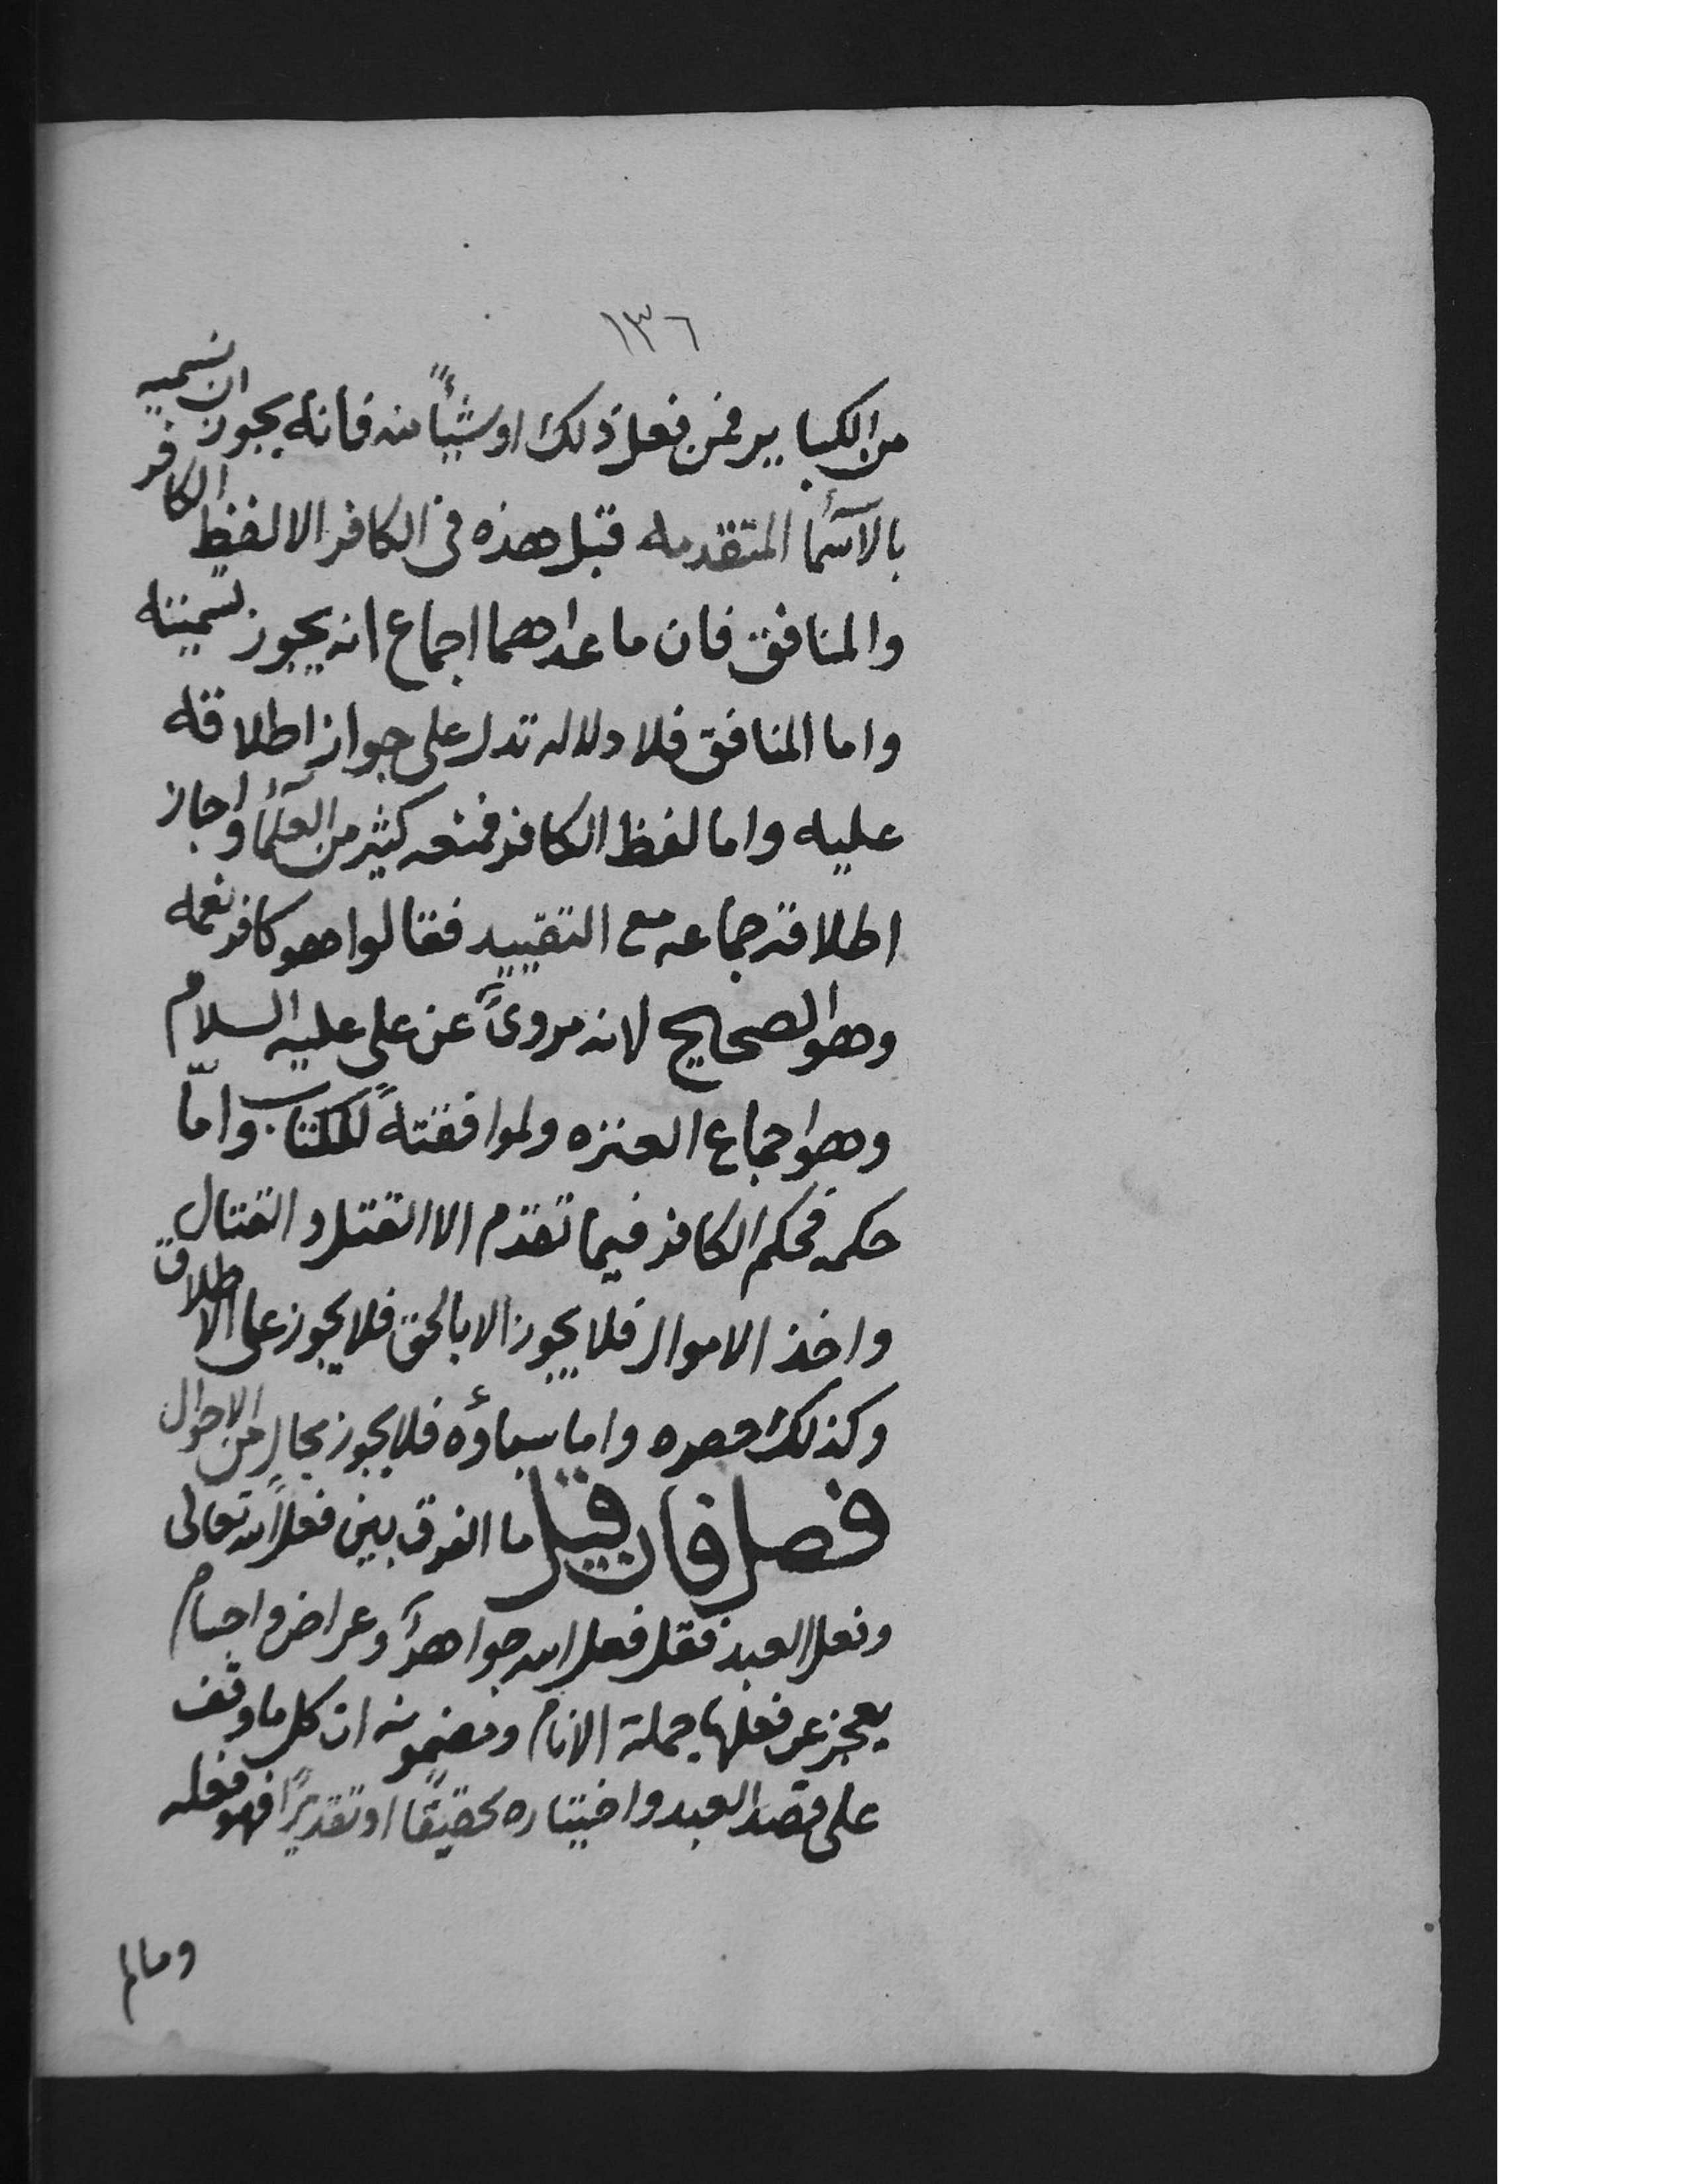 ١٣٦
من الكبايرفمن فعل ذلك اوشيئاً منه فانه يجوز ان نسميه
بالآسمأ المتقدمه قبل هذه فى الكافر الا لفظ الكافر
والمنافق فان ماعداهما اجماع انه يجوز تسميته
واما المنافق فلا دلاله تدل على جواز اطلاقه
عليه واما لفظ الكافر فمنعه كثير من العلمآء واجاز
اطلاقه جماعه مع التقييد فقالوا هو كافر نعمه
وهو الصحيح لانه مروىً عن على عليه السلام
وهو اجماع العتره ولموافقتهً للكتاب وامّا
حكمه فحكم الكافر فيما تقدم الا القتل والقتال
واخذ الاموال فلا يجوز الا بالحق فلا يجوز على الاطلاق
وكذلك حصره واما سباؤه فلا يجوز بحالٍ من الاحوال
فصل فان قيل ما الفرق بين فعل الله تعالى
وفعل العبد فقل فعل الله جواهرٌ وعراض واجسام
يعجز عن فعلها جملة الانام ومضمونه ان كل ما وقف
على قصد العبد واختياره تحقيقًا او تقديرًا فهو فعله
ومالم